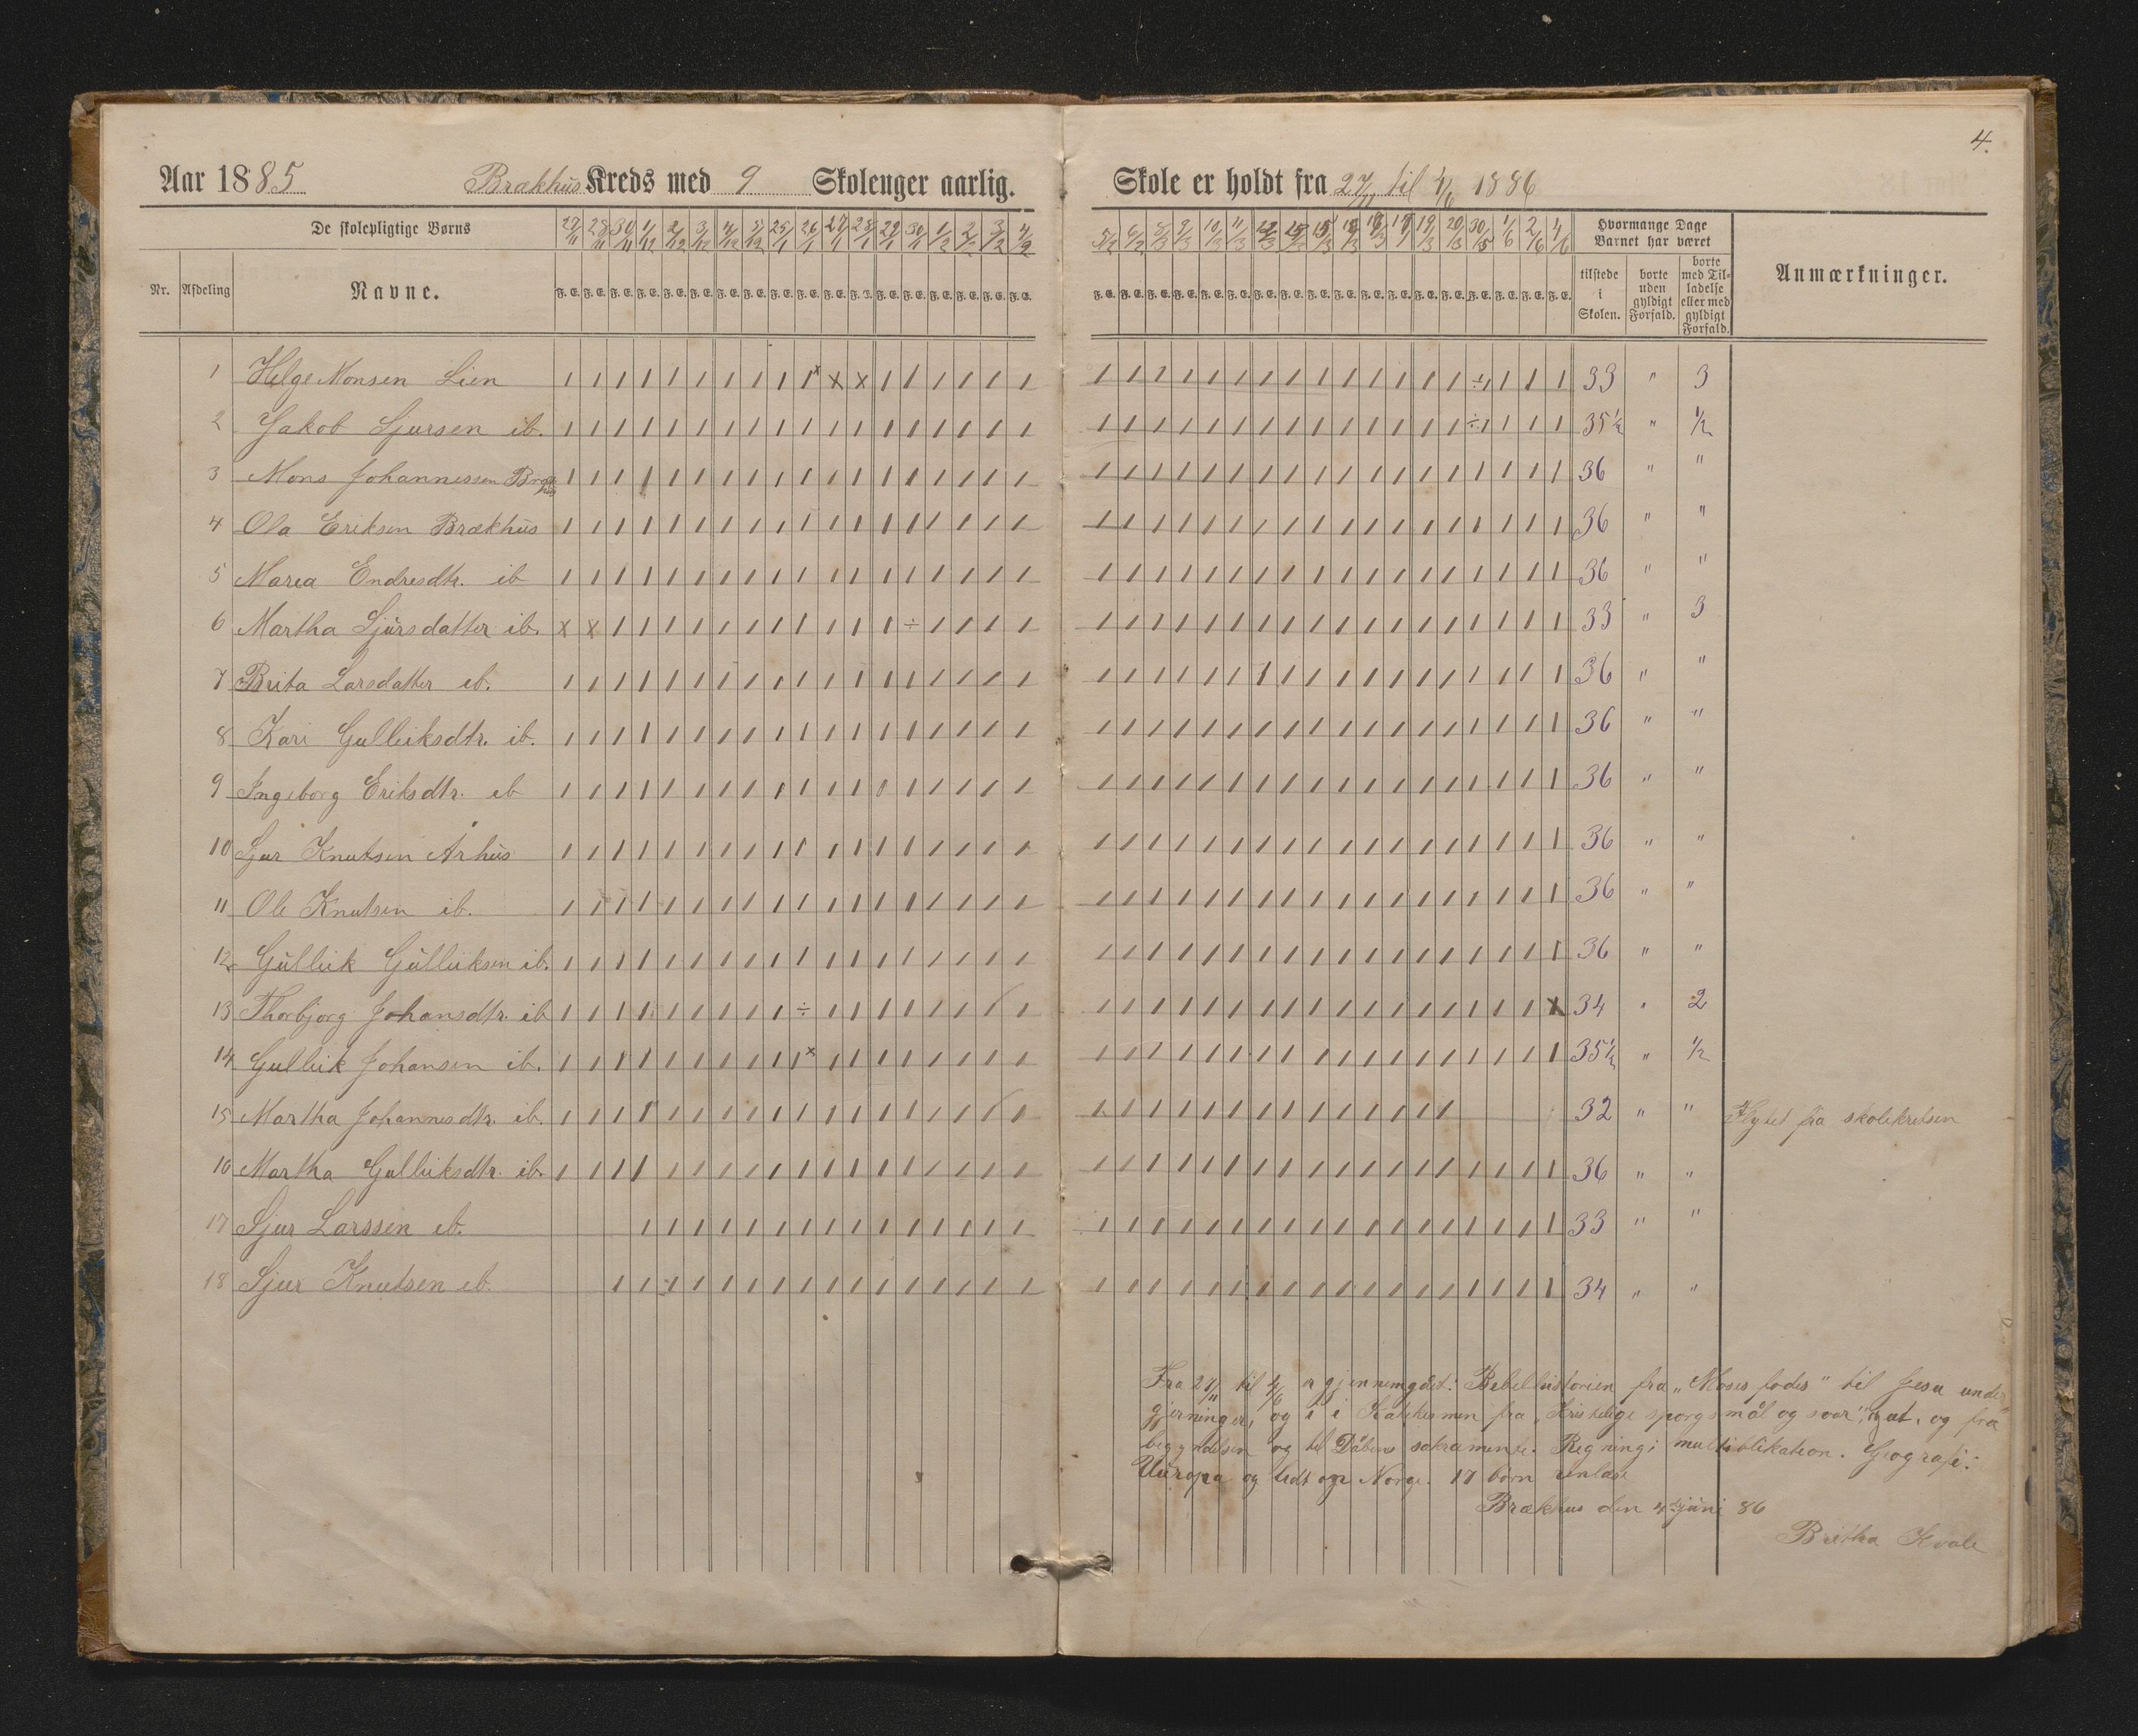 4.
Aar 1885 Brækhus Kreds med 9 Skolenger aarlig. Skole er holdt fra 27/11 til 4/6 1886
De skolepligtige Børns 27/11 28/11 30/11 1/12 2/12 3/12 4/12 5/12 25/1 26/1 27/1 28/1 29/1 30/1 1/2 2/2 3/2 4/2 5/2 6/2 8/3 9/3 10/3 11/3 19/3 20/3 30/5 1/6 2/6 4/6 Hvormange Dage Barnet har været
Nr. Afdeling Navne. F. E. tilstede i Skolen. borte uden gyldigt Forfald. borte med Tilladelse eller med gyldigt Forfald. Anmærkninger.
1 Helge Monsen Lien 33 " 3
2 Jakob Sjursen ib. 35 1/2 " 1/2
3 Mons Johannessen Brækhus 36 " "
4 Ola Eriksen Brækhus 36 " "
5 Marea Endresdtr. ib 36 " "
6 Martha Sjursdatter ib. 33 " 3
7 Brita Larsdatter ib. 36 " "
8 Kari Gulleiksdtr. ib. 36 " "
9 Ingeborg Eriksdtr. ib 36 " "
10 Sjur Knutsen Århus 36 " "
11 Ole Knutsen ib. 36 " "
12 Gulleik Gulleiksen ib. 36 " "
13 Thorbjorg Johansdtr. ib 34 " 2
14 Gulleik Johansen ib. 35 1/2 " 1/2
15 Martha Johannesdtr. ib. 32 " " Flytet fra skolekretsen
16 Martha Gulleiksdtr. ib. 36 " "
17 Sjur Larssen ib. 33 " "
18 Sjur Knutsen ib. 34 " "
Fra 27/11 til 4/6 er gjennemgået: Bibelhistorien fra "Moses fødes" til Jesu under
gjerninger, og i i Katekismen fra "Kristelige spørgsmål og svar", ut, og fra
begyndelsen og til Dåbens sakramente. Regning: multiblikation. Geografi:
Europa og lidt om Norge. 17 børn
Brækhus den 4de juni 86
Britha Kvale